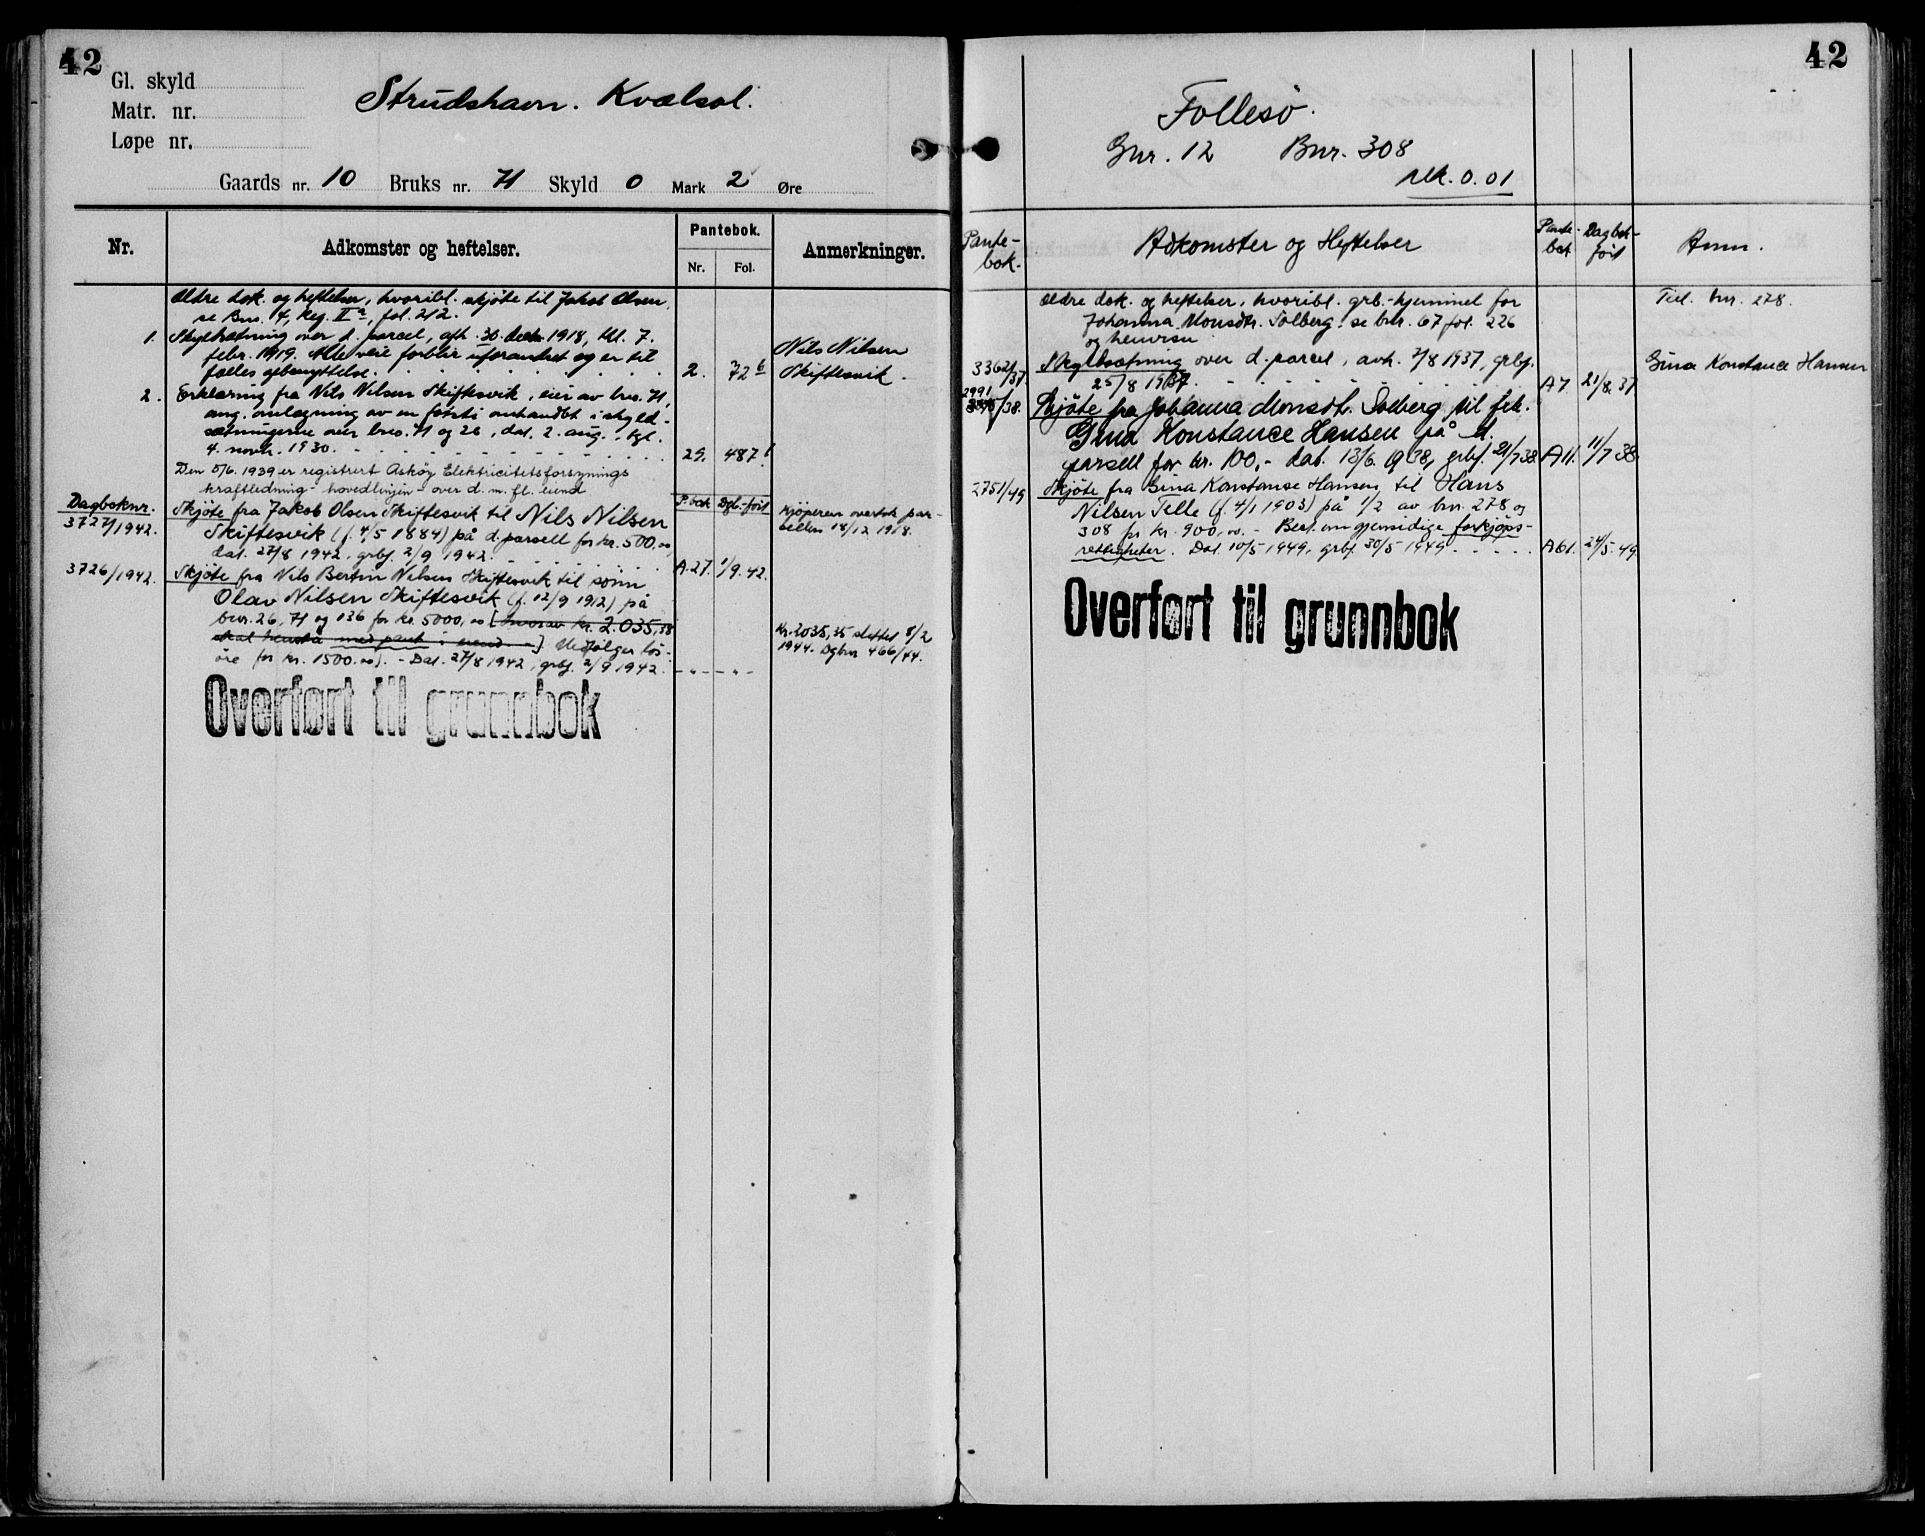 42
Gl. skyld
Matr. nr.
Løpe nr.
Strudshavn. Kvalsol.
Gaards nr. 10 Bruks nr. 71 Skyld 0 Mark 2 Øre
Nr. Adkomster og heftelser. Pantebok. Anmerkninger.
Nr. Fol.
Ældre dok. og heftelser, hvoribl. skjöte til Jakob Olsen,
se Bno. 4, Reg. II a, fol. 212.
1. Skyldsætning over d. parcel, afh. 30. 1918, tbl. 7.
febr. 1919. Alle veie forblir uforandret og er til
fælles gebenyttelse. 2. 72 b Nils Nilsen Skiftesvik.
2. Erklæring fra Nils Nilsen Skiftesvik, eier av bno. 71,
ang. omlægning av en försti omhandlet i skyld-
sætningerne over bno. 71 og 26, dat. 2. aug., tgl.
4. novbr. 1930. 29. 487.
Den 5/6. 1939 er registrert Askøy Elektricitetsforsynings
kraftledning - hovedlinjen - over d. m. fl. eiend
Dagboknr. P.bok Dgb.-ført
3727/1942. Skjöte fra Jakob Olsen Skiftesvik til Nils Nilsen
Skiftesvik (f. 4/5 1884) på d. parsell for kr. 500,00
dat. 27/8 1942, grbf. 2/9 1942. A.27. 1/9.42.
Kjöperen overtok par-
sellen 14/12 1918.
3726/1942. Skjöte fra Nils Bertin Nilsen Skiftesvik til sönn
Olav Nilsen Skiftesvik (f. 12/9 1912) på
bnr. 26, 71 og 136 for kr. 5000,00 [hvorav kr. 2.035,35
skal henstå med pant i eiend.] Medfølger lös-
öre for kr. 1500.00). - Dat. 27/8 1942, grbf. 2/9 1942. - " - " -
Kr. 2035,35 slettet 8/2
1944. Dgbnr 466/44.
Overført til grunnbok
42
Follesö.
Gnr. 12 Bnr. 308
Mk. 0.01
Pante-
bok. Adkomster og Heftelser Pante-
bok Dagbok-
fört Anm.
Ældre dok. og heftelser, hvoribl. grb.-hjemmel for
Johanna Monsdtr. Solberg: se bnr. 67 fol. 226
og henvisn
Til. bnr. 278.
3362/37 Skyldsætning over d. parcel, avh. 7/8 1937, grbf.
25/8 1937. A7. 21/8.37 Gina Konstance Hansen
2991/38. Skjöte fra Johanna Monsdt. Solberg til frk.
Gina Konstance Hansen på d.
parsell for kr. 100,- dat. 13/6. 1938, grbf. 21/7 38 A11. 11/7 38
2751/49 Skjöte fra Gina Konstanse Hansen til Hans
Nilsen Telle (f. 4/1 1903) på 1/2 av bnr. 278 og
308 for kr. 900,00. - Best. om gjensidige forkjöps-
rettigheter. Dat. 10/5 1949, grbf. 30/5 1949 A61. 24/5.49
Overført til grunnbok